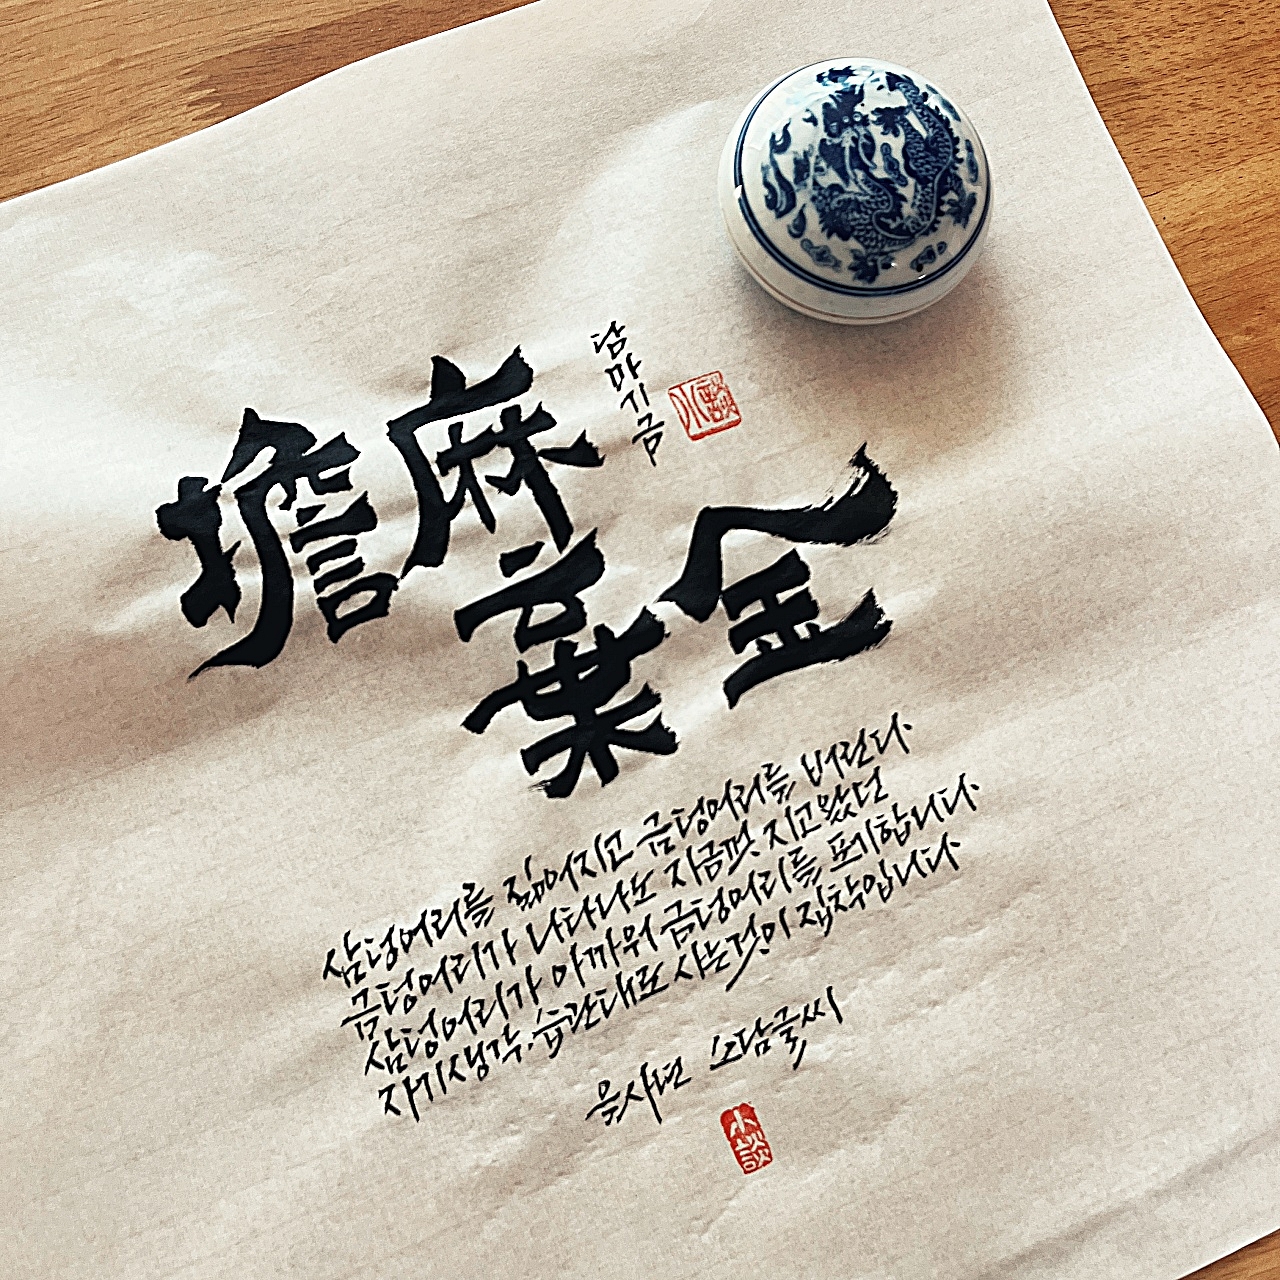 擔麻棄金
담마기금
小談
삼덩어리를 짊어지고 금덩어리를 버린다.
금덩어리가 나타나도 지금껏 지고왔던
삼덩어리가 아까워 금덩어리를 포기합니다.
자기생각, 습관대로 사는것이 집착입니다.
을사년 소담글씨
小談